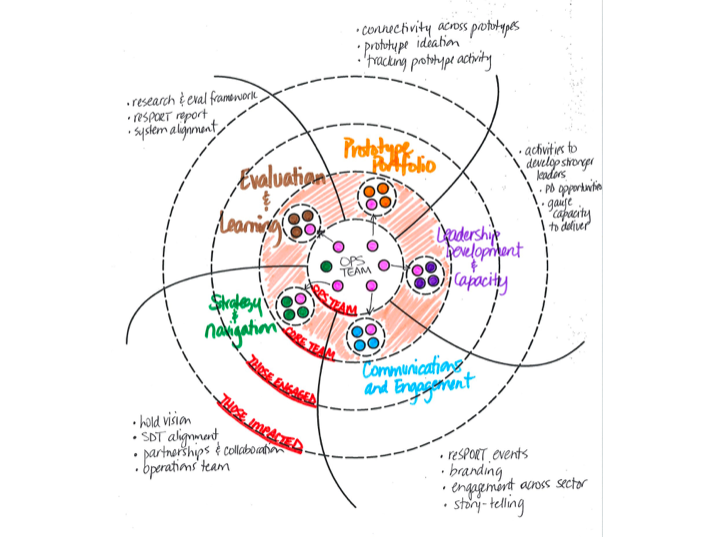 • connectivity across prototypes
• prototype ideation
• tracking prototype activity
• research & eval framework
• resPORT report
• system alignment
• activities to
develop stronger
leaders
• PD opportunities
• gauge
capacity
to deliver
Prototype
Portfolio
Evaluation
&
Learning
Leadership
Development
&
Capacity
OPS
TEAM
Strategy
&
navigation
OPS TEAM
CORE TEAM
THOSE ENGAGED
THOSE IMPACTED
Communications
and Engagement
• hold vision
• SDT alignment
• partnerships & collaboration
• operations team
• resPORT events
• branding
• engagement across sector
• story-telling